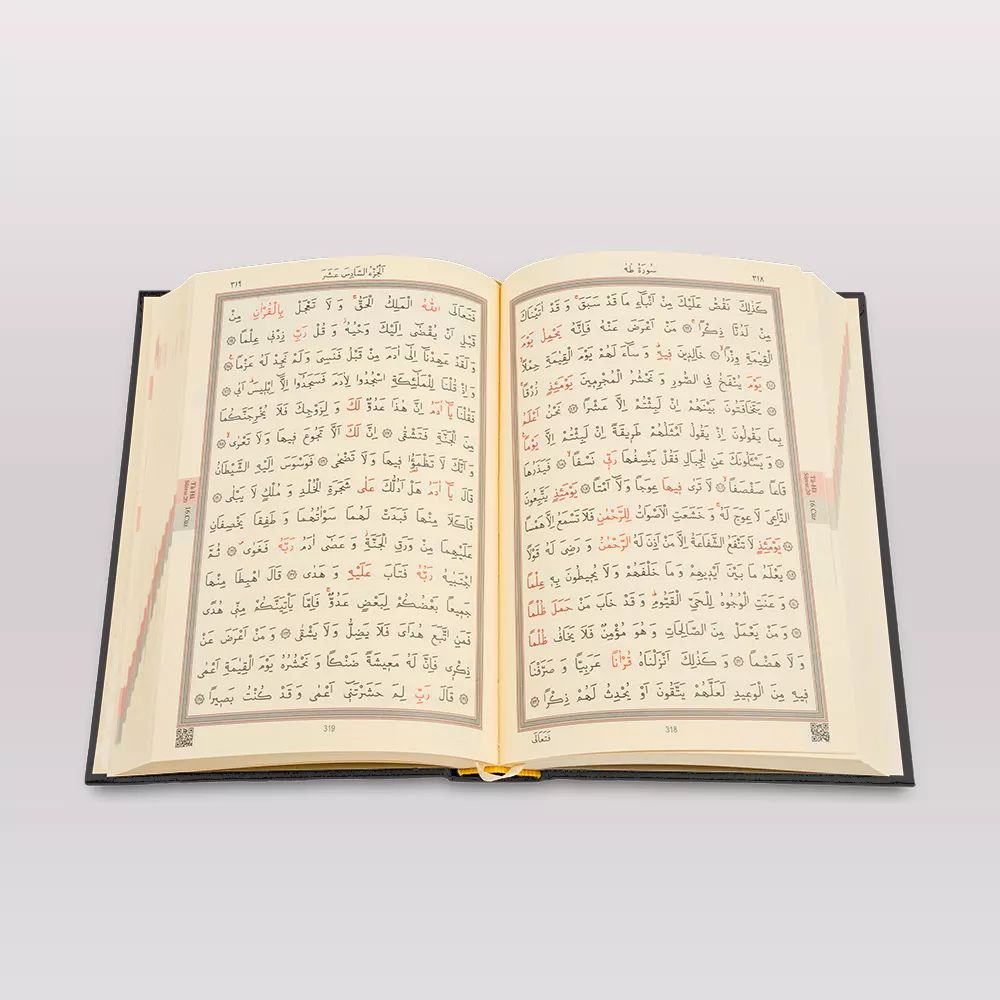 سُورَةُ طٰهٰ
٣١٨
كَذٰلِكَ نَقُصُّ عَلَيْكَ مِنْ اَنْبَٓاءِ مَا قَدْ سَبَقَۚ وَ قَدْ اٰتَيْنَاكَ
مِنْ لَدُنَّا ذِكْرًاۚ مَنْ اَعْرَضَ عَنْهُ فَاِنَّهُ يَحْمِلُ يَوْمَ
الْقِيٰمَةِ وِزْرًاۙ خَالِدِينَ فِيهِۜ وَ سَٓاءَ لَهُمْ يَوْمَ الْقِيٰمَةِ حِمْلًاۙ
يَوْمَ يُنْفَخُ فِى الصُّورِ وَ نَحْشُرُ الْمُجْرِمِينَ يَوْمَئِذٍ زُرْقًاۚ
يَتَخَافَتُونَ بَيْنَهُمْ اِنْ لَبِثْتُمْ اِلَّا عَشْرًا نَحْنُ اَعْلَمُ
بِمَا يَقُولُونَ اِذْ يَقُولُ اَمْثَلُهُمْ طَرِيقَةً اِنْ لَبِثْتُمْ اِلَّا يَوْمًاۚ
وَ يَسْـَٔلُونَكَ عَنِ الْجِبَالِ فَقُلْ يَنْسِفُهَا رَبِّى نَسْفًاۙ فَيَذَرُهَا
قَاعًا صَفْصَفًاۙ لَا تَرٰى فِيهَا عِوَجًا وَلَٓا اَمْتًاۜ يَوْمَئِذٍ يَتَّبِعُونَ
الدَّاعِىَ لَا عِوَجَ لَهُۚ وَ خَشَعَتِ الْاَصْوَاتُ لِلرَّحْمٰنِ فَلَا تَسْمَعُ اِلَّا هَمْسًا
يَوْمَئِذٍ لَا تَنْفَعُ الشَّفَاعَةُ اِلَّا مَنْ اَذِنَ لَهُ الرَّحْمٰنُ وَ رَضِىَ لَهُ قَوْلًا
يَعْلَمُ مَا بَيْنَ اَيْدِيهِمْ وَ مَا خَلْفَهُمْ وَ لَا يُحِيطُونَ بِهِ عِلْمًا
وَ عَنَتِ الْوُجُوهُ لِلْحَىِّ الْقَيُّومِۜ وَ قَدْ خَابَ مَنْ حَمَلَ ظُلْمًا
وَ مَنْ يَعْمَلْ مِنَ الصَّالِحَاتِ وَ هُوَ مُؤْمِنٌ فَلَا يَخَافُ ظُلْمًا
وَ لَا هَضْمًا وَ كَذٰلِكَ اَنْزَلْنَاهُ قُرْاٰنًا عَرَبِيًّا وَ صَرَّفْنَا
فِيهِ مِنَ الْوَعِيدِ لَعَلَّهُمْ يَتَّقُونَ اَوْ يُحْدِثُ لَهُمْ ذِكْرًا
فَتَعَالَى
318
Tâ-Hâ
Sûresi:20
16.Cüz
اَلْجُزْءُ السَّادِسَ عَشَرَ
٣١٩
فَتَعَالَى اللّٰهُ الْمَلِكُ الْحَقُّۚ وَ لَا تَعْجَلْ بِالْقُرْاٰنِ مِنْ
قَبْلِ اَنْ يُقْضٰٓى اِلَيْكَ وَحْيُهُۘ وَ قُلْ رَبِّ زِدْنِى عِلْمًا
وَ لَقَدْ عَهِدْنَٓا اِلٰٓى اٰدَمَ مِنْ قَبْلُ فَنَسِىَ وَ لَمْ نَجِدْ لَهُ عَزْمًاۚ
وَ اِذْ قُلْنَا لِلْمَلٰٓئِكَةِ اسْجُدُوا لِاٰدَمَ فَسَجَدُٓوا اِلَّٓا اِبْلِيسَۜ اَبٰى
فَقُلْنَا يَٓا اٰدَمُ اِنَّ هٰذَا عَدُوٌّ لَكَ وَ لِزَوْجِكَ فَلَا يُخْرِجَنَّكُمَا
مِنَ الْجَنَّةِ فَتَشْقٰى اِنَّ لَكَ اَلَّا تَجُوعَ فِيهَا وَ لَا تَعْرٰىۙ
وَ اَنَّكَ لَا تَظْمَؤُا فِيهَا وَ لَا تَضْحٰى فَوَسْوَسَ اِلَيْهِ الشَّيْطَانُ
قَالَ يَٓا اٰدَمُ هَلْ اَدُلُّكَ عَلٰى شَجَرَةِ الْخُلْدِ وَ مُلْكٍ لَا يَبْلٰى
فَاَكَلَا مِنْهَا فَبَدَتْ لَهُمَا سَوْاٰتُهُمَا وَ طَفِقَا يَخْصِفَانِ
عَلَيْهِمَا مِنْ وَرَقِ الْجَنَّةِۘ وَ عَصٰٓى اٰدَمُ رَبَّهُ فَغَوٰىۖ ثُمَّ
اجْتَبٰيهُ رَبُّهُ فَتَابَ عَلَيْهِ وَ هَدٰى قَالَ اهْبِطَا مِنْهَا
جَمِيعًا بَعْضُكُمْ لِبَعْضٍ عَدُوٌّۚ فَاِمَّا يَأْتِيَنَّكُمْ مِنِّى هُدًى
فَمَنِ اتَّبَعَ هُدَاىَ فَلَا يَضِلُّ وَ لَا يَشْقٰى وَ مَنْ اَعْرَضَ عَنْ
ذِكْرِى فَاِنَّ لَهُ مَعِيشَةً ضَنْكًا وَ نَحْشُرُهُ يَوْمَ الْقِيٰمَةِ اَعْمٰى
قَالَ رَبِّ لِمَ حَشَرْتَنِٓى اَعْمٰى وَ قَدْ كُنْتُ بَصِيرًا
319
Tâ-Hâ
Sûresi:20
16.Cüz